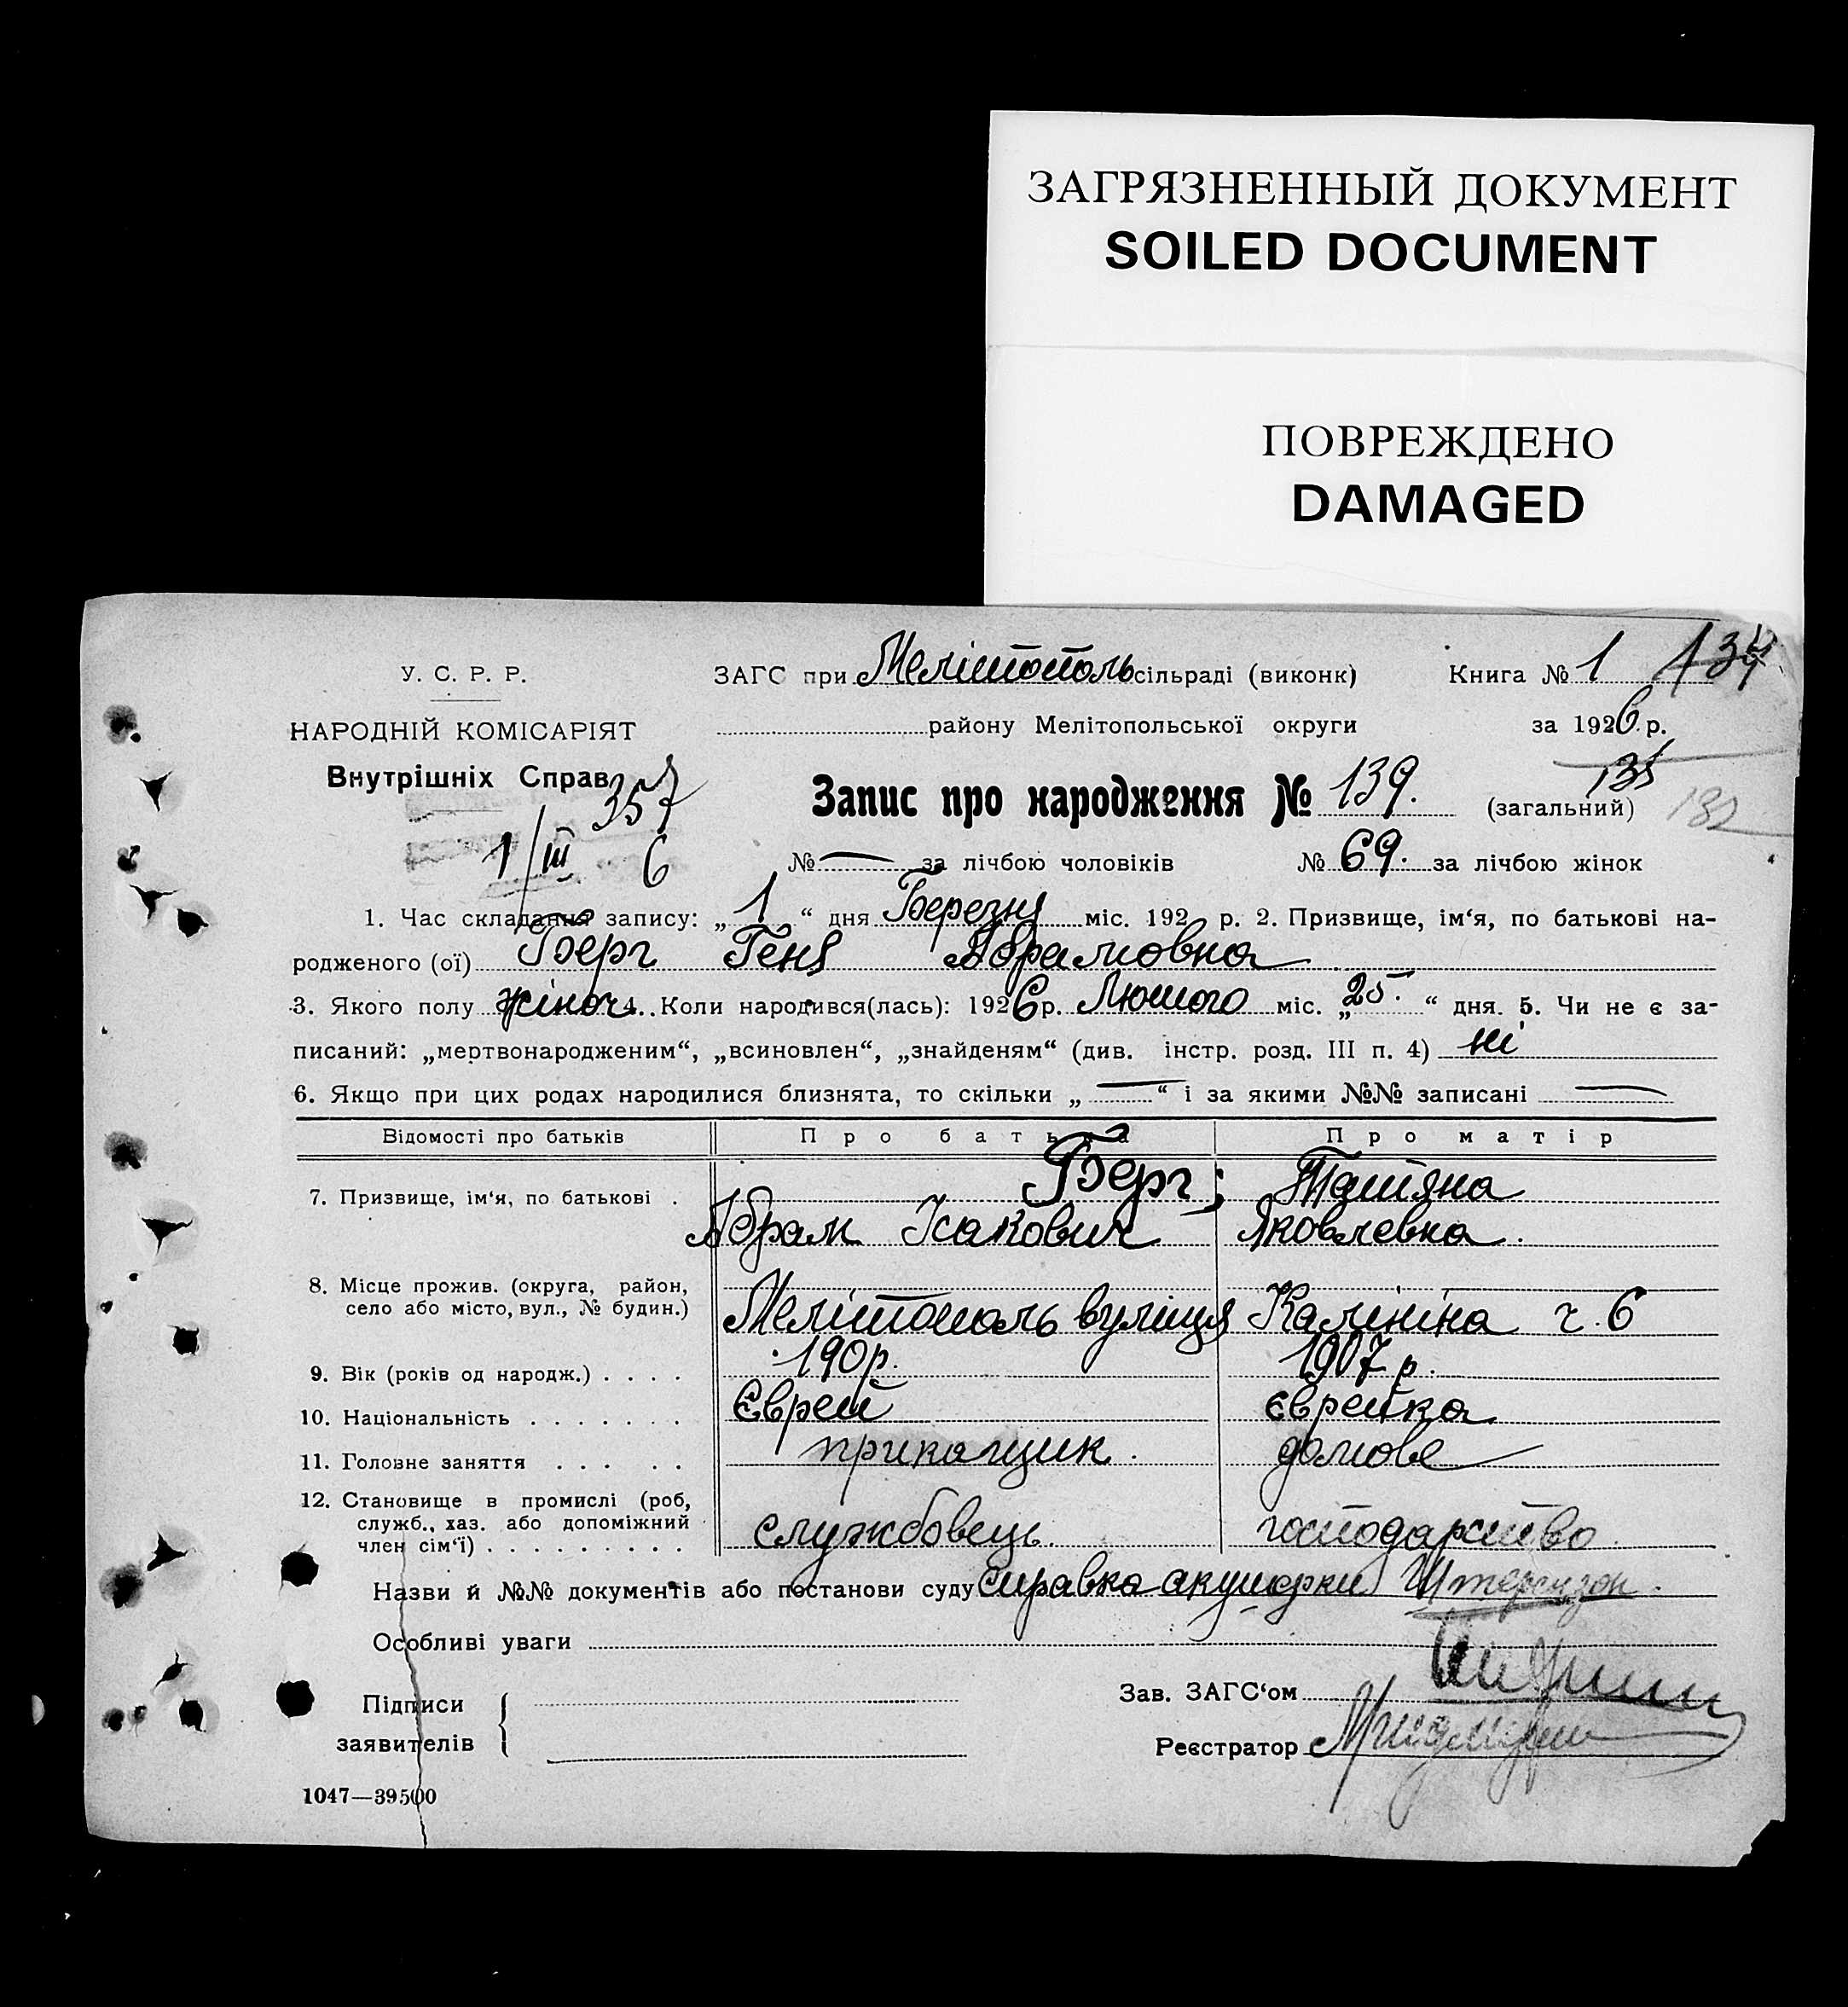 ЗАГРЯЗНЕННЫЙ ДОКУМЕНТ
SOILED DOCUMENT
ПОВРЕЖДЕНО
DAMAGED
У. С. Р. Р.
ЗАГС при Мелітополь сільраді (виконк)
Книга № 1
НАРОДНІЙ КОМІСАРІЯТ
району Мелітопольської округи
за 1926 р.
Внутрішніх Справ
357
Запис про народження № 139. (загальний)
132
1/III 6
№ — за лічбою чоловіків № 69. за лічбою жінок
1. Час складання запису: „ 1 “ дня Березня міс. 192 р. 2. Призвище, ім‘я, по батькові на-
родженого (ої) Берг Геня Абрамовна
3. Якого полу жіноч. 4. Коли народився(лась): 1926 р. Лютого міс. „ 25. “ дня. 5. Чи не є за-
писаний: „мертвонародженим“, „всиновлен“, „знайденям“ (див. інстр. розд. III п. 4) ні
6. Якщо при цих родах народилися близнята, то скільки „ — “ і за якими №№ записані —
Відомості про батьків Про батька Про матір
7. Призвище, ім‘я, по батькові . Берг; Татяна
Абрам Ісакович Яковлевна.
8. Місце прожив. (округа, район,
село або місто, вул., № будин.) Мелітополь вуліця Калініна ч. 6
9. Вік (років од народж.) . . . . 190р. 1907 р.
10. Національність . . . . . . . Єврей єврейка
11. Головне заняття . . . . . прикащик. домове
12. Становище в промислі (роб,
служб., хаз. або допоміжний
член сім‘ї) . . . . . . . . . службовець. господарство.
Назви й №№ документів або постанови суду справка акушорки
Особливі уваги
Підписи
заявителів
Зав. ЗАГС‘ом
Реєстратор
1047—39500